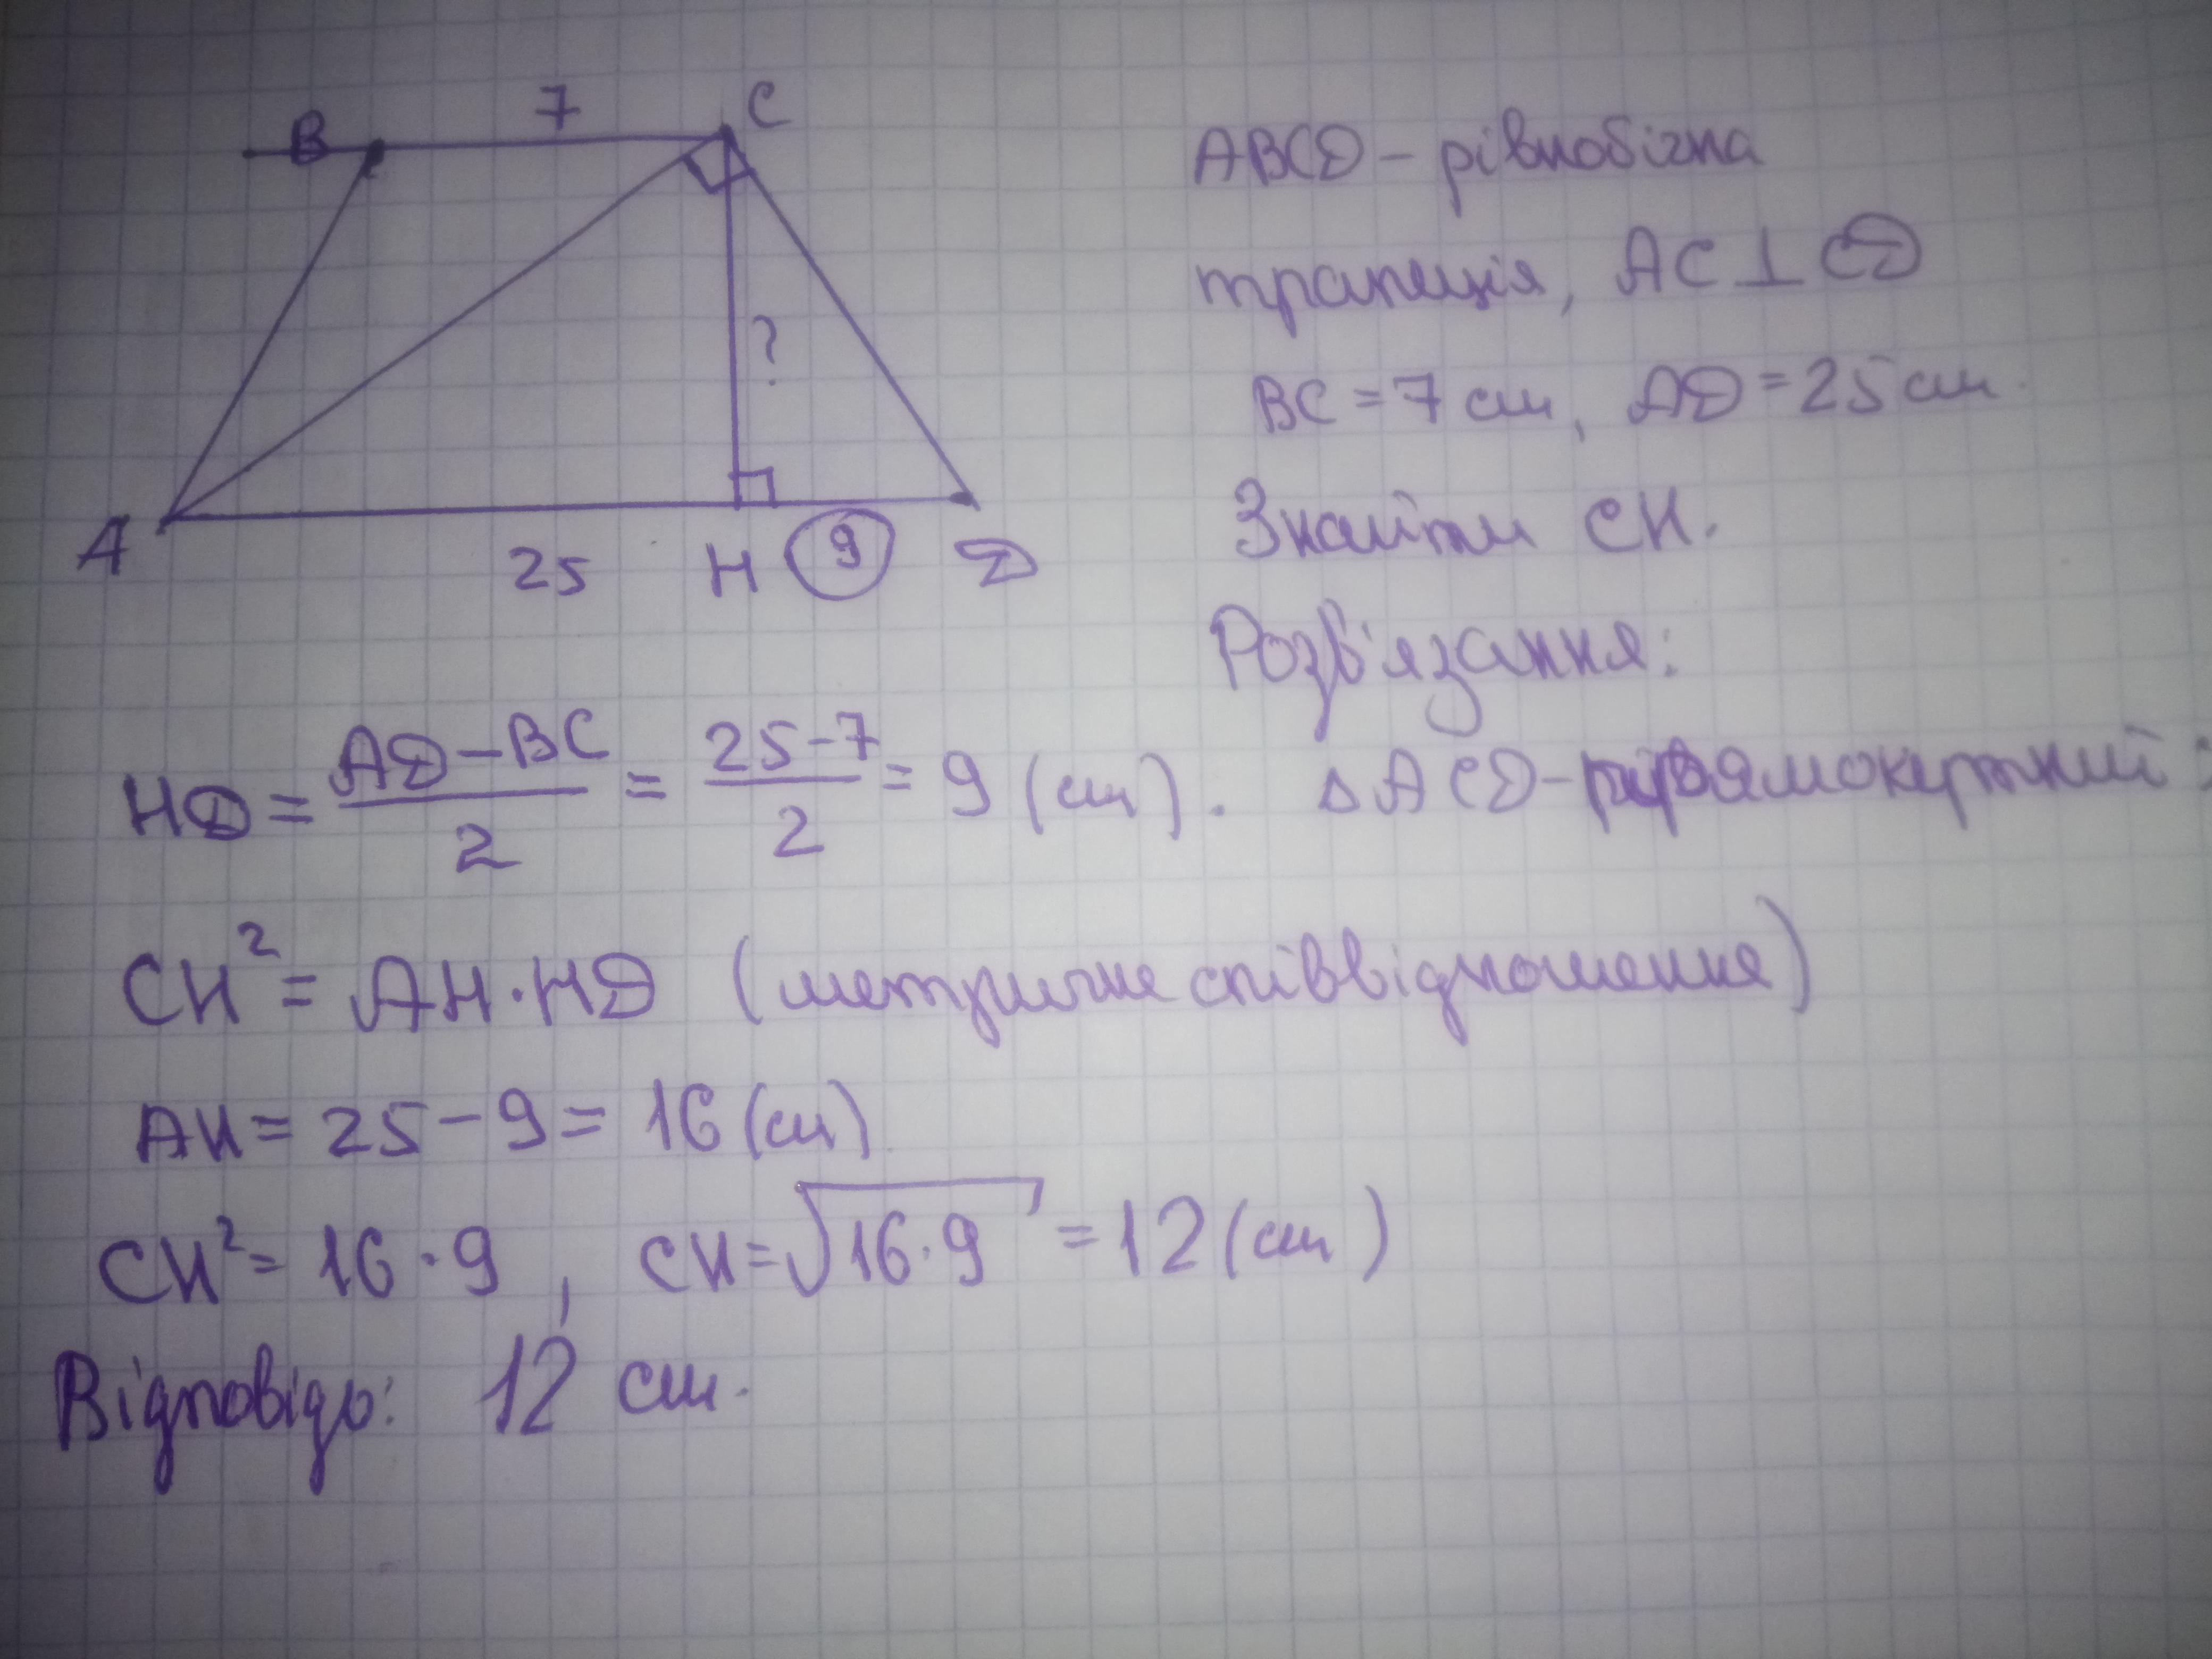 B 7 C
?
A 25 H 9 D
ABCD – рівнобічна
трапеція, AC ⊥ CD
BC = 7 см, AD = 25 см.
Знайти CH.
Розв'язання:
HD = (AD – BC)/2 = (25 – 7)/2 = 9 (см). △ ACD – прямокутний:
CH² = AH · HD (метричне співвідношення)
AH = 25 – 9 = 16 (см)
CH² = 16 · 9 , CH = √(16 · 9) = 12 (см)
Відповідь: 12 см.